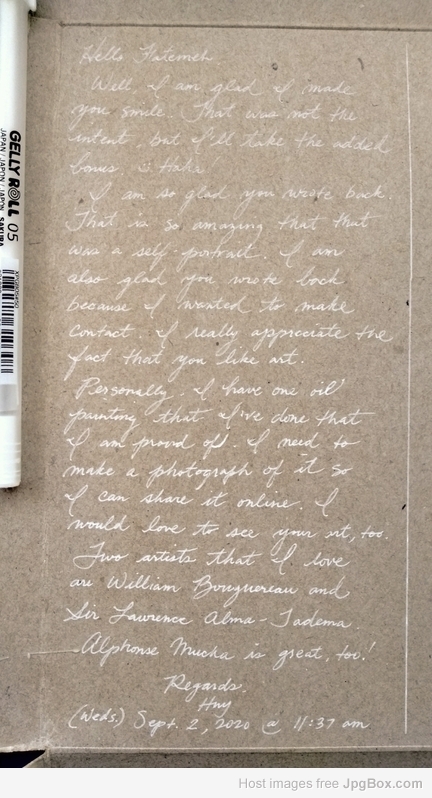 Hello Fatemeh
Well, I am glad I made
you smile. That was not the
intent, but I'll take the added
bonus,
I am so glad you wrote back.
That is so amazing that that
was a self portrait. I am
also glad you wrote back
because I wanted to make
contact. I really appreciate the
fact that you like art.
Personally, I have one oil
painting that I've done that
I am proud of. I need to
make a photograph of it so
I can share it online. I
would love to see your art, too.
Two artists that I love
are William Bouguereau and
Sir Lawrence Alma-Tadema.
Alphonse Mucha is great, too!
Regards,
(Weds.) Sept. 2, 2020 @ 11:37 am
GELLY ROLL 05
JAPAN / JAPON / JAPÓN SAKURA
Host images free JpgBox.com